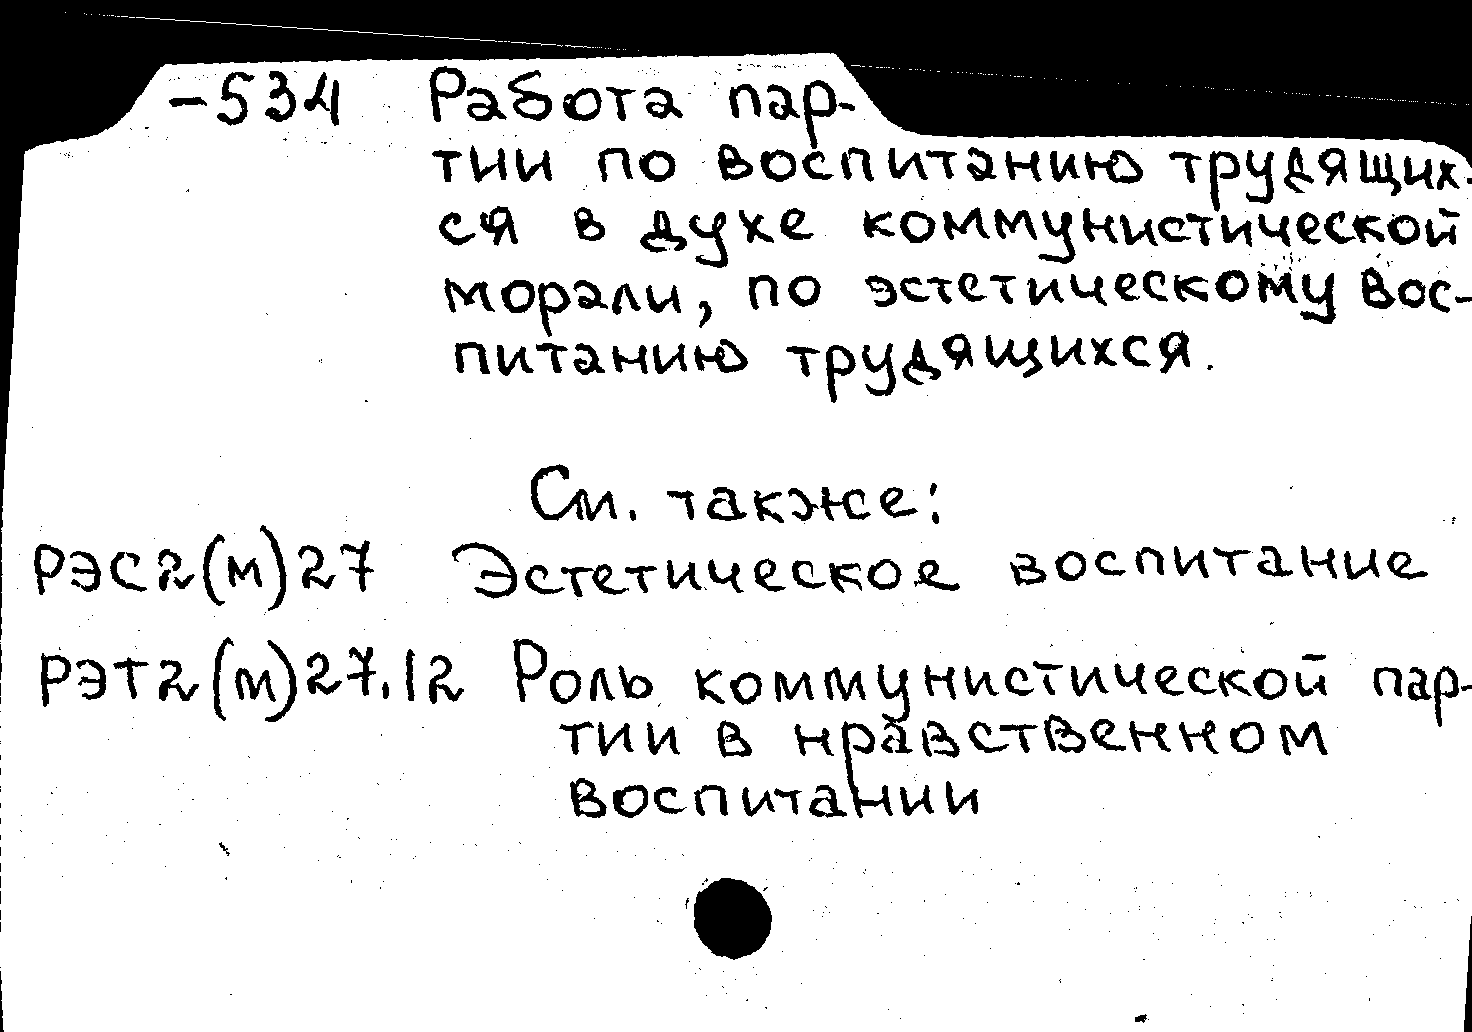 -534 Работа пар-
тии по воспитанию трудящих-
ся в духе коммунистической
морали, по эстетическому вос-
питанию трудящихся.
См. также:
РЭС2(м)27 Эстетическое воспитание
РЭТ2(м)27.12 Роль коммунистической пар-
тии в нравственном
воспитании